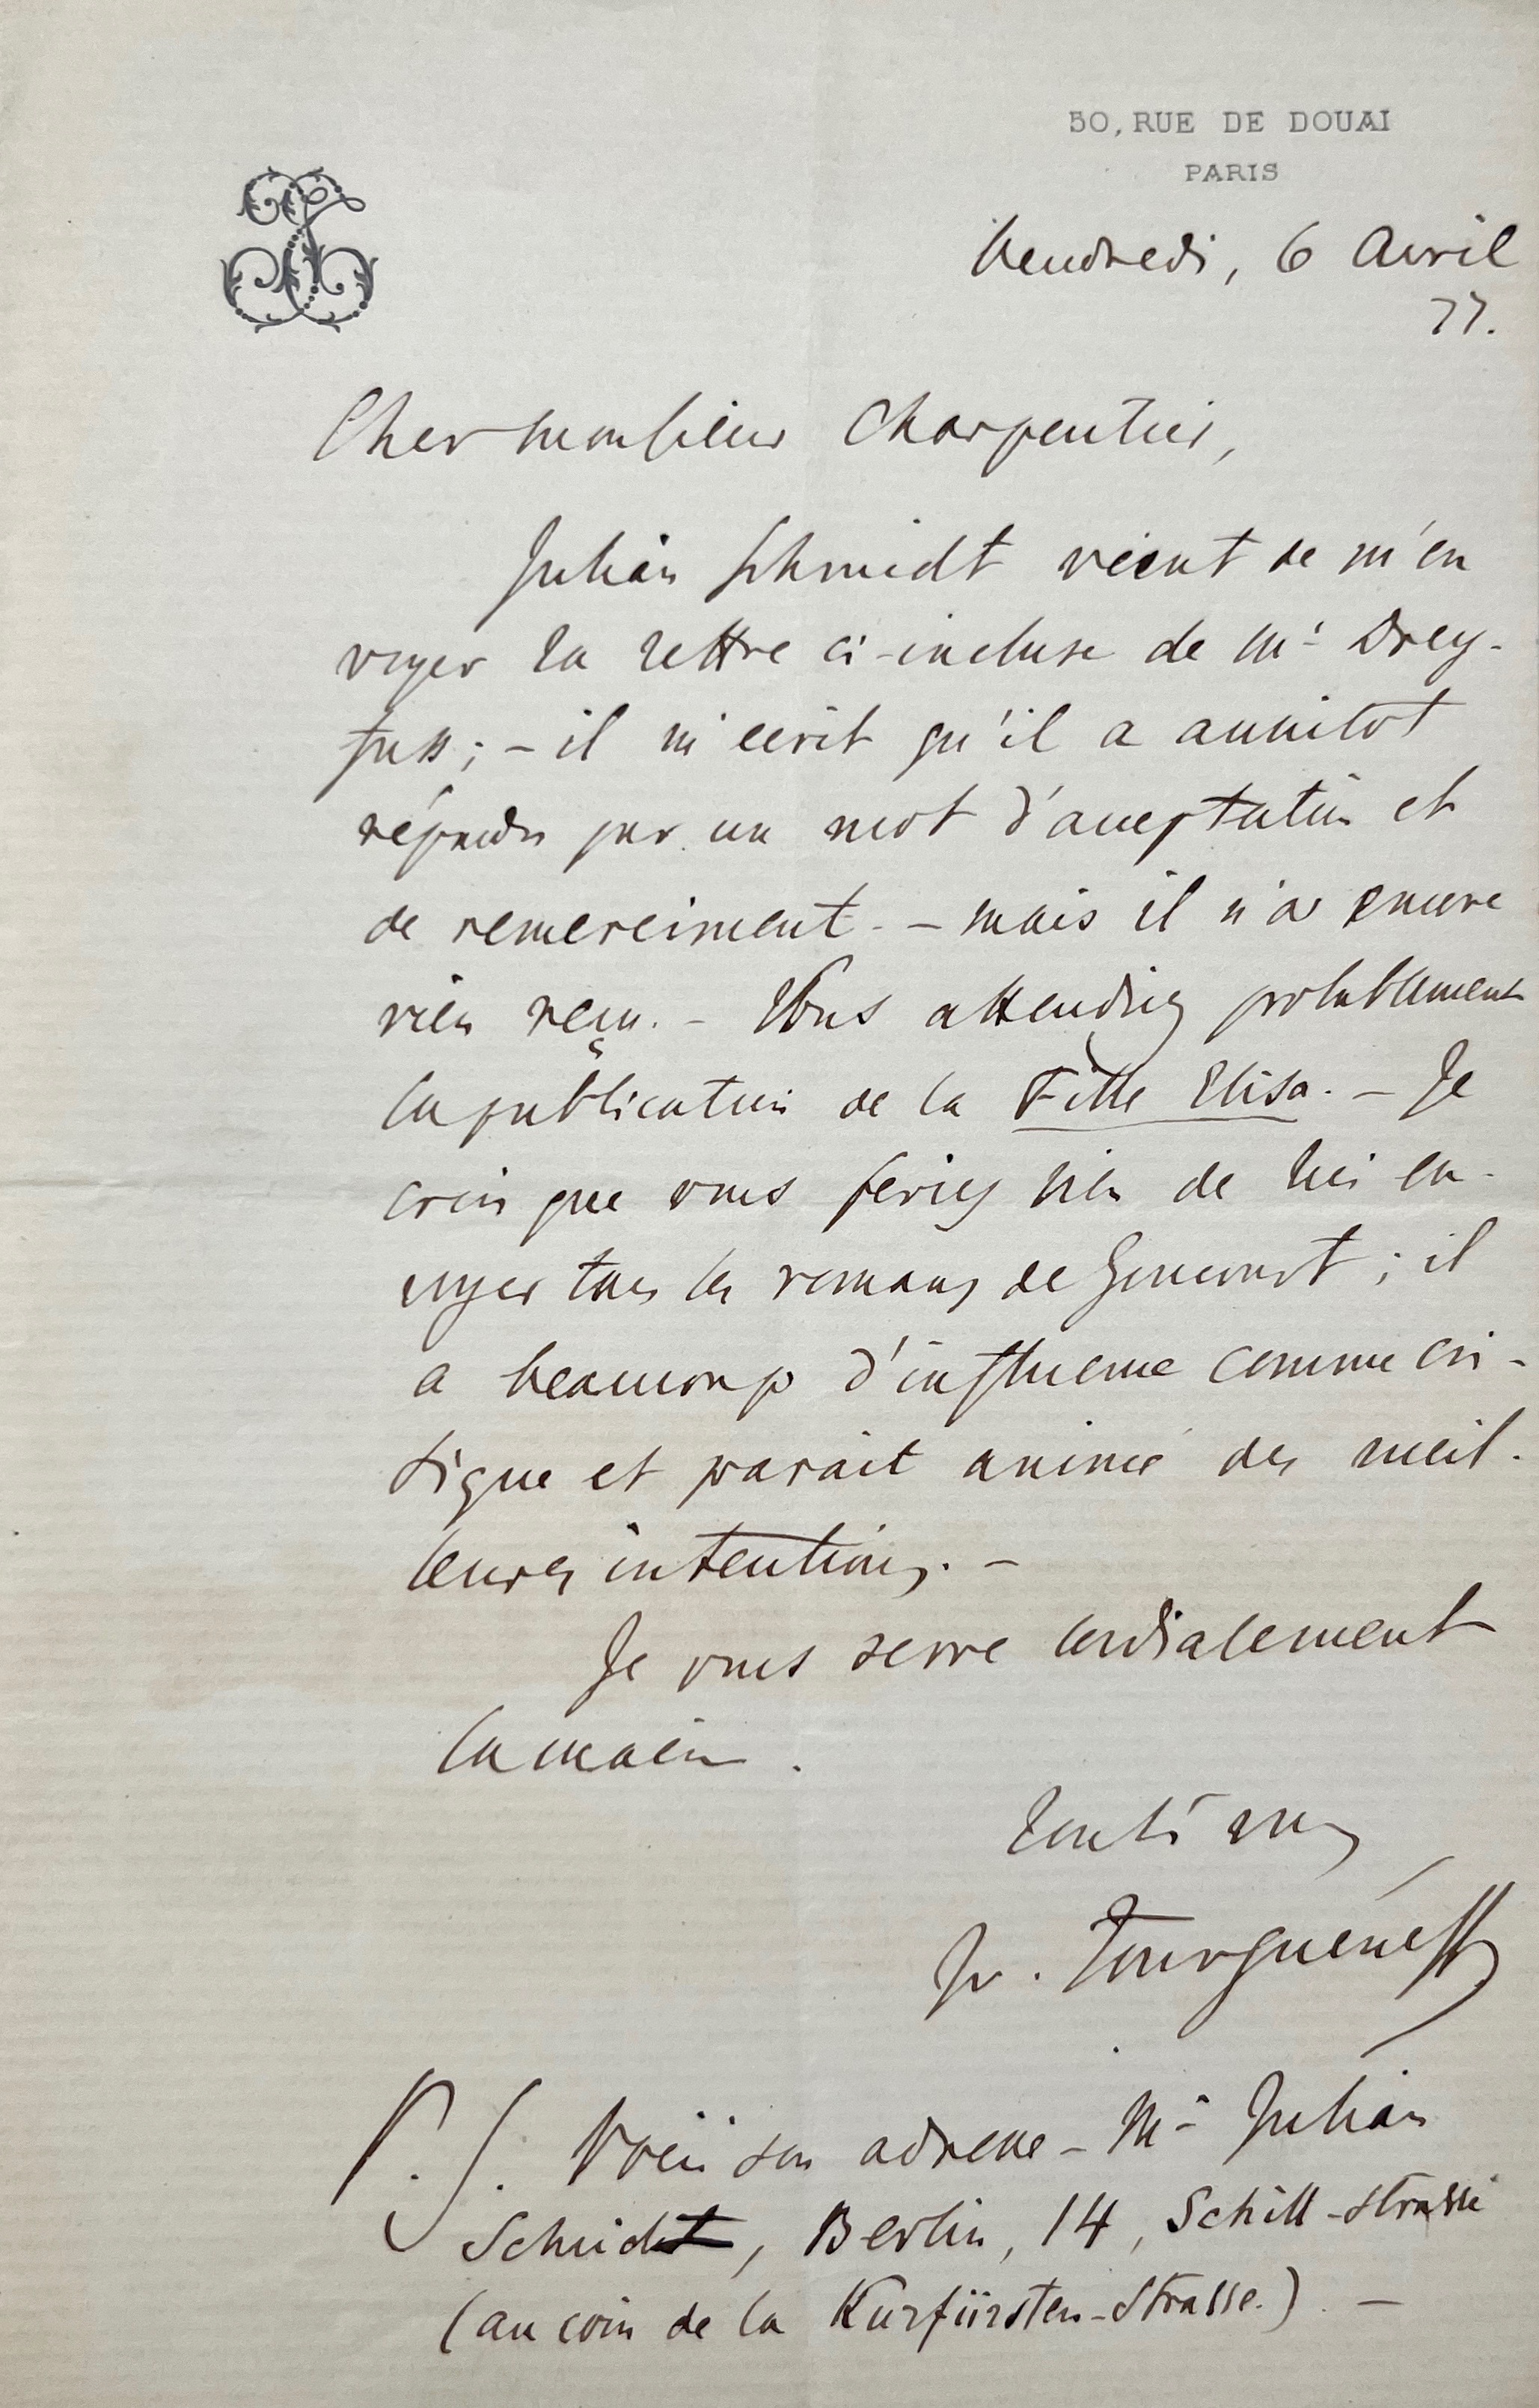 50, RUE DE DOUAI
PARIS
Vendredi, 6 Avril
77.
Cher monsieur Charpentier,
Julian Schmidt vient de m'en
voyer la lettre ci-incluse de Mr Drey-
fuss; – il m'écrit qu'il a aussitot
répondu par un mot d'acceptation et
de remerciment – mais il n'a encore
rien reçu. – Vous attendiez probablement
la publication de la Fille Elisa. – Je
crois que vous feriez bien de lui en-
voyer tous les romans de Goncourt; il
a beaucoup d'influence comme cri-
tique et parait animé des meil-
leures intentions. –
Je vous serre cordialement
la main.
Tout à vous
Iv. Tourguéneff
P. S. Voici son adresse – Mr Julian
Schmidt, Berlin, 14, Schill-Strasse
(au coin de la Kurfürsten-Strasse.) –